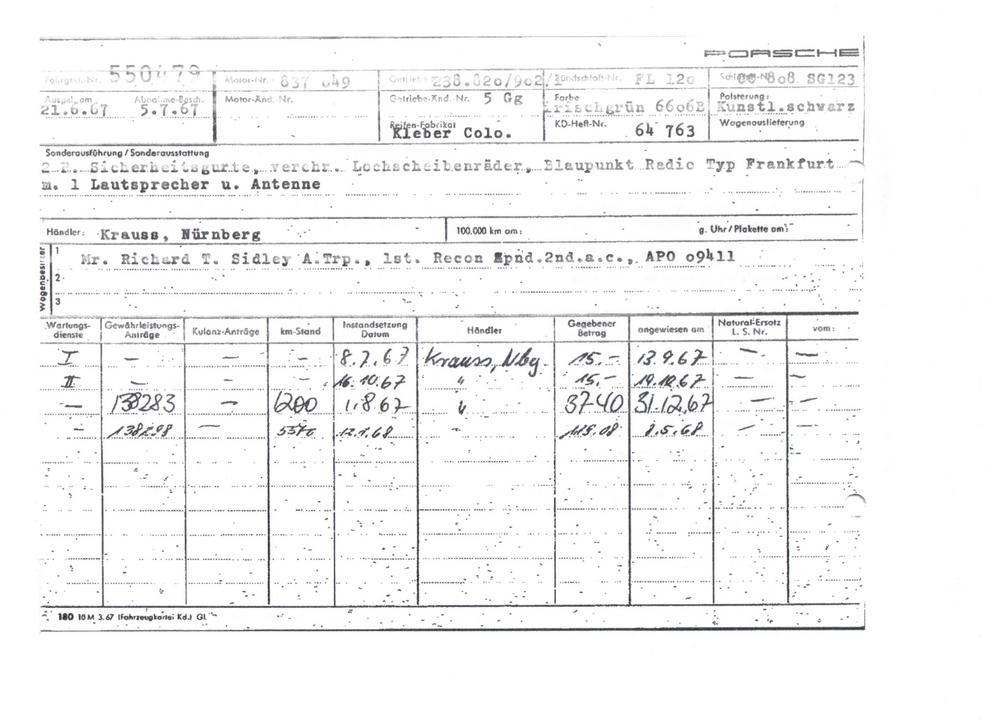 PORSCHE
Fahrgest.-Nr. 550479 Motor-Nr. 837 049 Getriebe 238.020/902/ Zündschloß-Nr. FL 120 808 SG123
Ausgel. am 21.6.67 Abnahme-Besch. 5.7.67 Motor-Änd.-Nr. Getriebe-Änd.-Nr. 5 Gg Farbe Irischgrün 6606B Polsterung: Kunstl.schwarz
Reifen-Fabrikat Kleber Colo. KD-Heft-Nr. 64 763 Wagenauslieferung
Sonderausführung / Sonderausstattung
2 R. Sicherheitsgurte, verchr. Lochscheibenräder, Blaupunkt Radio Typ Frankfurt
m. 1 Lautsprecher u. Antenne
Händler: Krauss, Nürnberg 100.000 km am: g. Uhr / Plakette am:
Wagenbesitzer
1 Mr. Richard T. Sidley A.Trp., 1st. Recon Spnd.2nd.a.c., APO 09411
2
3
Wartungsdienste Gewährleistungs-Anträge Kulanz-Anträge km-Stand Instandsetzung Datum Händler Gegebener Betrag angewiesen am Natural-Ersatz L. S. Nr. vom:
I — — — 8.7.67 Krauss, Nbg. 15.- 13.9.67 — —
II — — — 16.10.67 " 15.- 19.12.67 — —
— 138283 — 1200 1.8.67 " 37.40 31.12.67
— 138298 — 5570 12.1.68 119.08 8.5.68 — —
180 10 M 3.67 (Fahrzeugkartei Kd.) Gl.